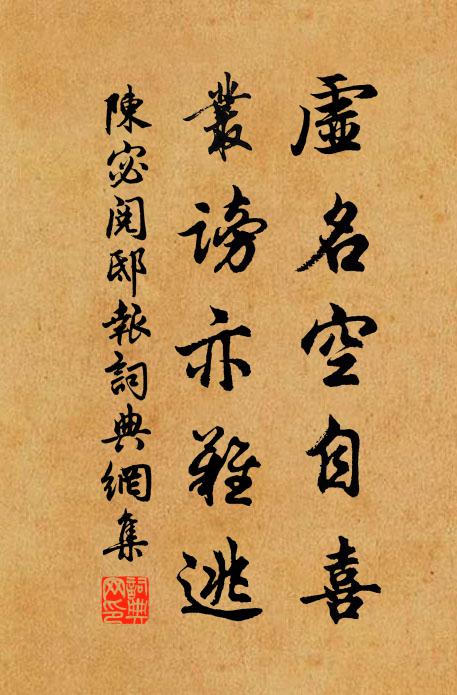 虛名空自喜
叢謗亦難逃
陳宓閱邸報詞典網集
詞典網印